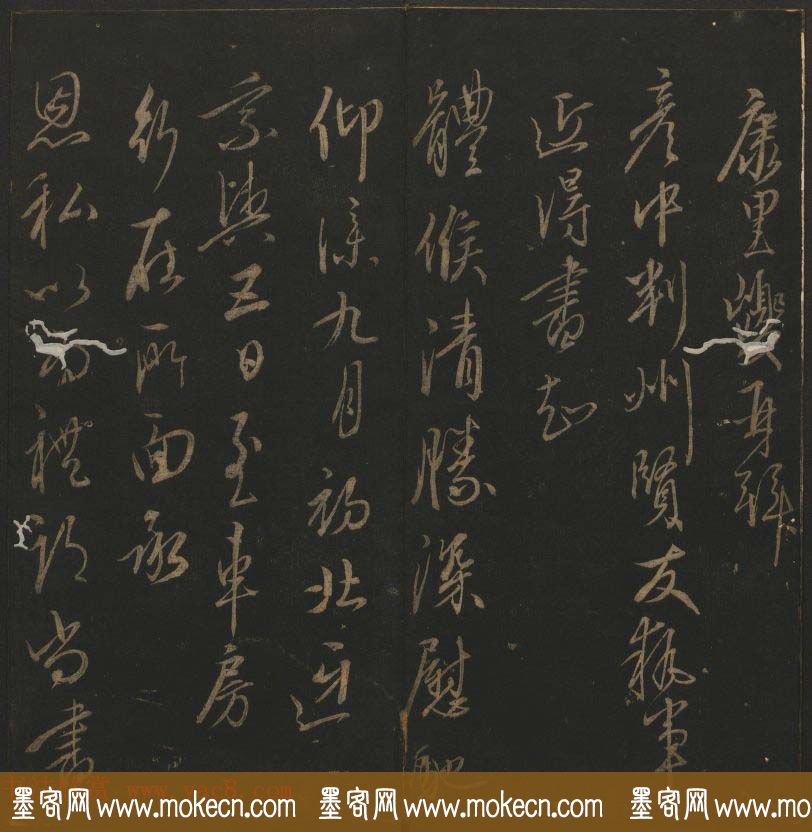 康里巎巎再拜
彥中判州賢友執事
近得書知
體候清勝深慰馳
仰九月初北迓
乘輿五日至車房
行在所面承
恩私以為禮部尚書
墨客网www.mokecn.com 墨客网www.mokecn.com 墨客网www.mo